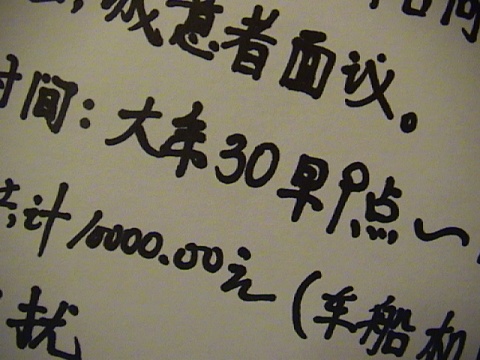 诚意者面议。
时间:大年30早9点~
共计10000.00元(车船机
扰